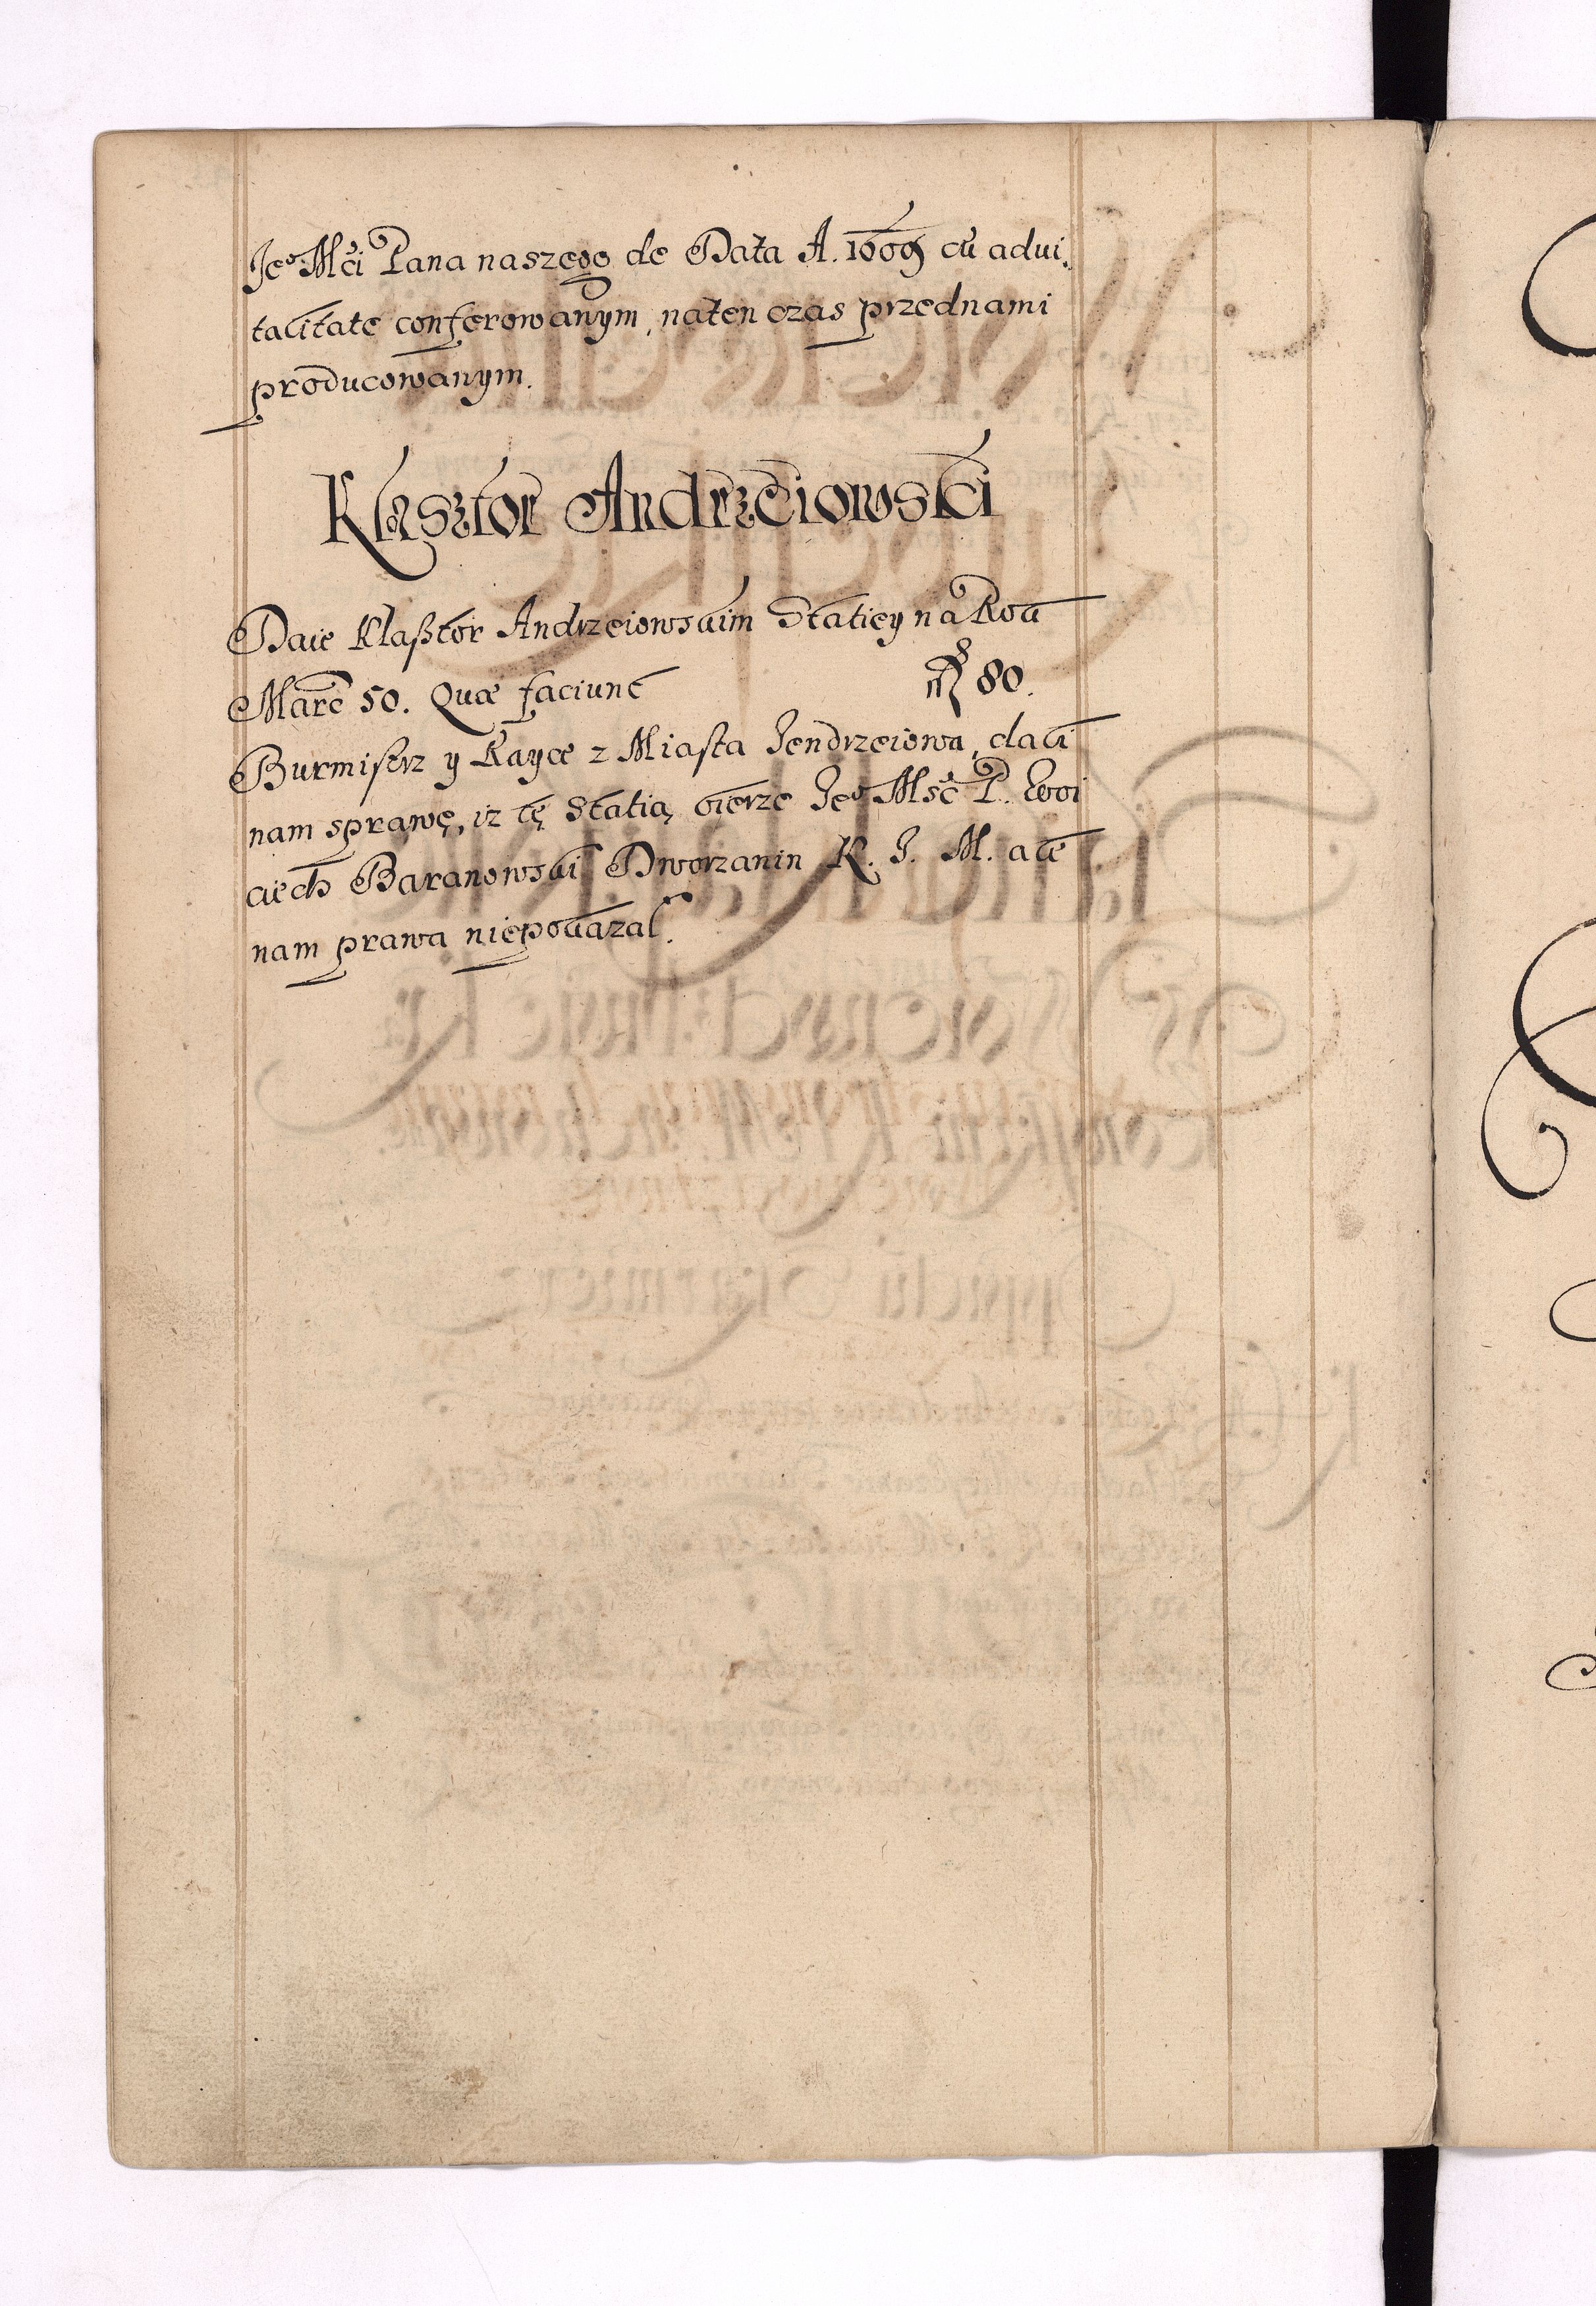 Jeº Mći Pana naszego de Data A. 1609 cū advi,
tacitate conferowanym, naten czas przednami
producowanym.
Klasztor Andrzeiowski
Daie Klaßtor Andrzeiowskim Statiey na Rok
Marc 50. Quæ faciunt fl 80.
Burmistrz y Rayce z Miasta Jendrzeiowa, dali
nam sprawę, iz tę Statią bierze Jeº Mść P. Woi
ciech Baranowski Dworzanin K. J. M. ale
nam prawa niepokazał.